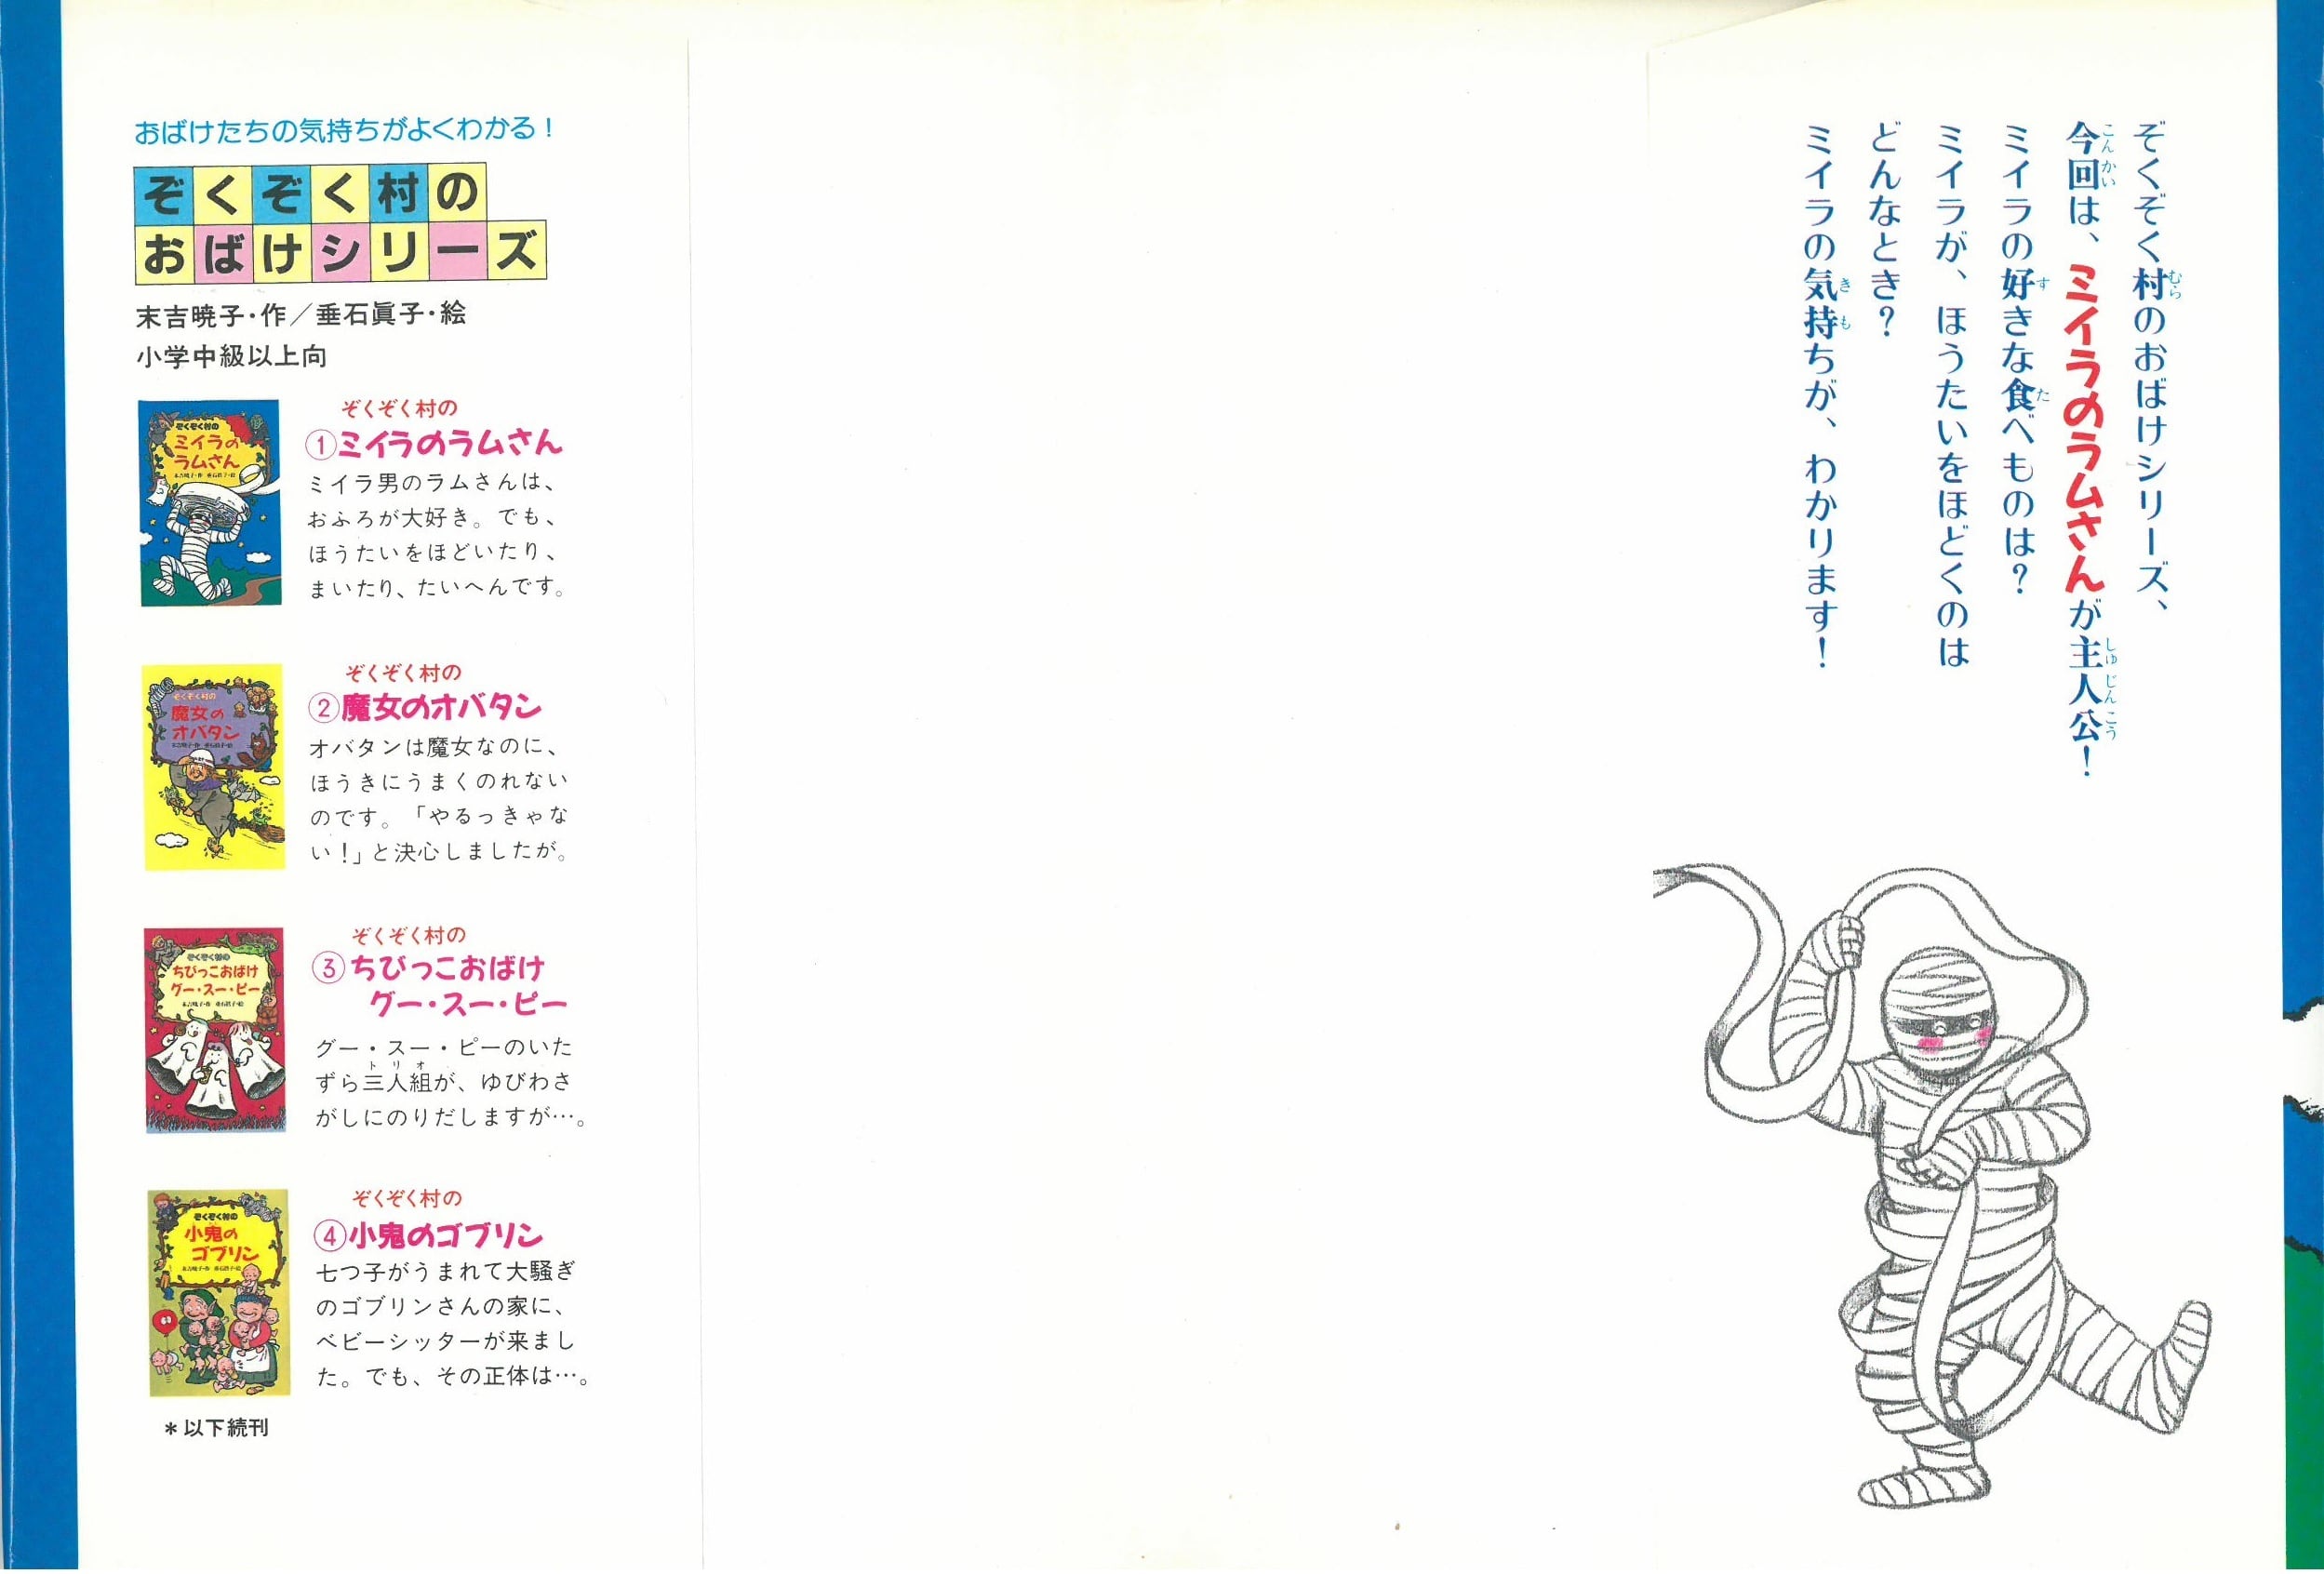 ぞくぞく村のおばけシリーズ、
今回は、ミイラのラムさんが主人公！
ミイラの好きな食べものは？
ミイラが、ほうたいをほどくのは
どんなとき？
ミイラの気持ちが、わかります！
おばけたちの気持ちがよくわかる！
ぞくぞく村の
おばけシリーズ
末吉暁子・作／垂石眞子・絵
小学中級以上向
ぞくぞく村の
①ミイラのラムさん
ミイラ男のラムさんは、
おふろが大好き。でも、
ほうたいをほどいたり、
まいたり、たいへんです。
ぞくぞく村の
ミイラの
ラムさん
末吉暁子・作 垂石眞子・絵
ぞくぞく村の
②魔女のオバタン
オバタンは魔女なのに、
ほうきにうまくのれない
のです。「やるっきゃな
い！」と決心しましたが。
ぞくぞく村の
魔女の
オバタン
末吉暁子・作 垂石眞子・絵
ぞくぞく村の
③ちびっこおばけ
グー・スー・ピー
グー・スー・ピーのいた
ずら三人組が、ゆびわさ
がしにのりだしますが…。
ぞくぞく村の
ちびっこおばけ
グー・スー・ピー
末吉暁子・作 垂石眞子・絵
ぞくぞく村の
④小鬼のゴブリン
七つ子がうまれて大騒ぎ
のゴブリンさんの家に、
ベビーシッターが来まし
た。でも、その正体は…。
ぞくぞく村の
小鬼の
ゴブリン
末吉暁子・作 垂石眞子・絵
＊以下続刊